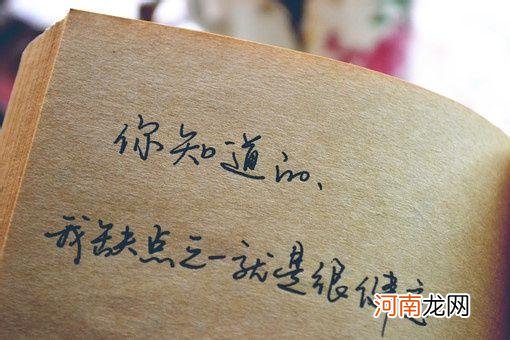 你知道的、
我缺点之一就是很健忘
河南龙网